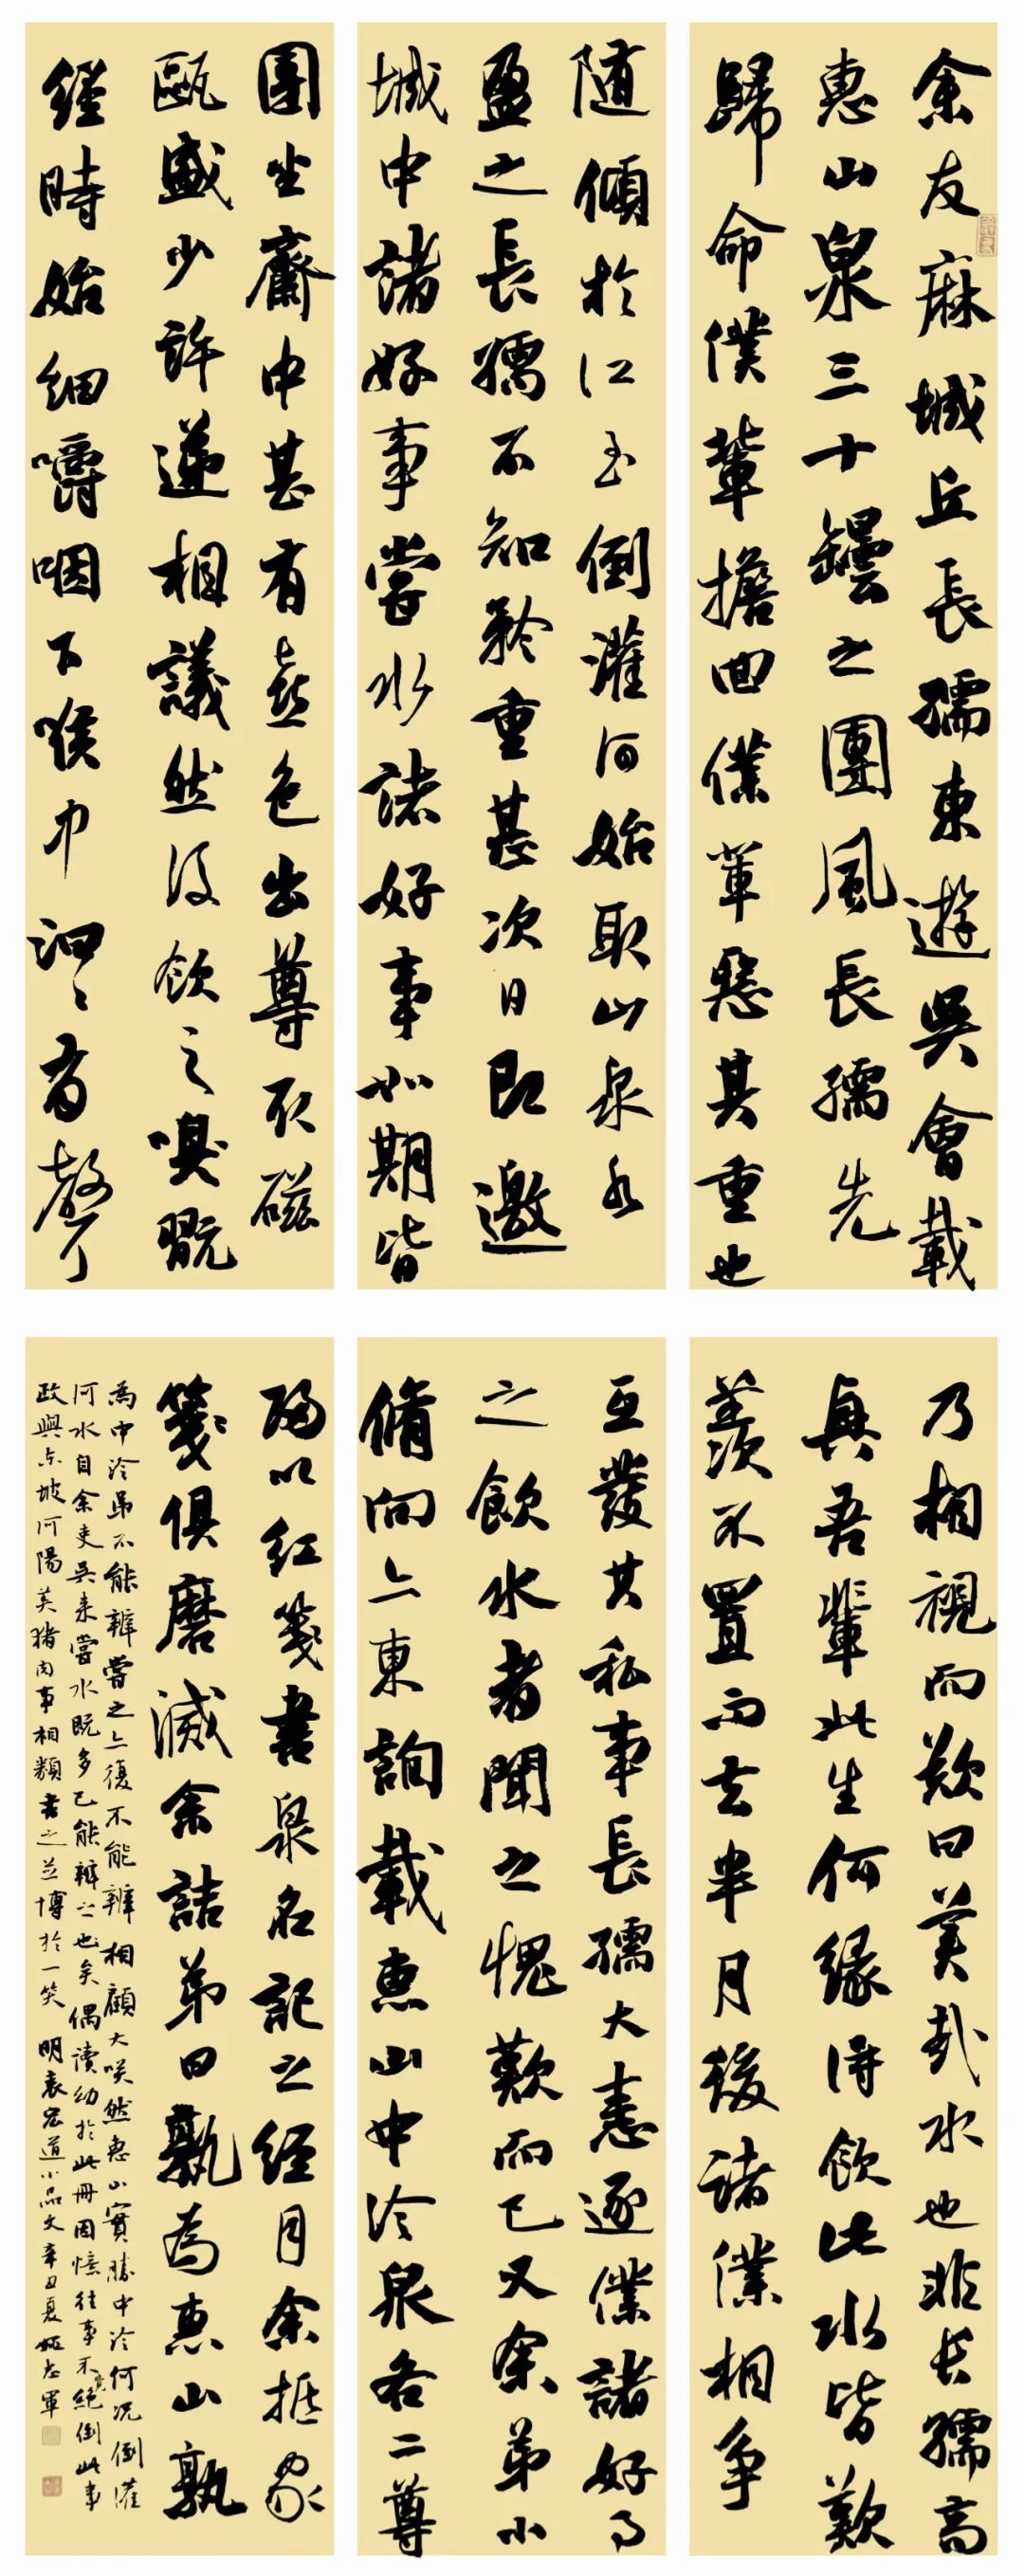 余友麻城丘長孺東遊吳會載
惠山泉三十罎之團風長孺先
歸命僕輩擔回僕輩惡其重也
隨傾於江至倒灌河始取山泉水
盈之長孺不知矜重甚次日即邀
城中諸好事嘗水諸好事如期皆
團坐齋中甚有喜色出尊取磁
甌盛少許遞相議然後飲之嗅翫
經時始細嚼咽下喉中汩汩有聲
乃相視而歎曰美哉水也非長孺高
興吾輩此生何緣得飲此水皆歎
羨不置而去半月後諸僕相爭
互發其私事長孺大恚逐僕諸好事
之飲水者聞之愧歎而已又余弟小
脩向亦東詢載惠山中泠泉各二尊
歸以紅箋書泉名記之經月余抵家
箋俱磨滅余詰弟曰孰為惠山孰
為中泠弟不能辨嘗之亦復不能辨相顧大咲然惠山實勝中泠何況倒灌
河水自余吏吳來嘗水既多已能辨之也矣偶讀幼於此冊因憶往事不覺絕倒此事
政與東坡河陽美猪肉事相類書之並博於一笑 明袁宏道小品文辛丑夏姬志軍